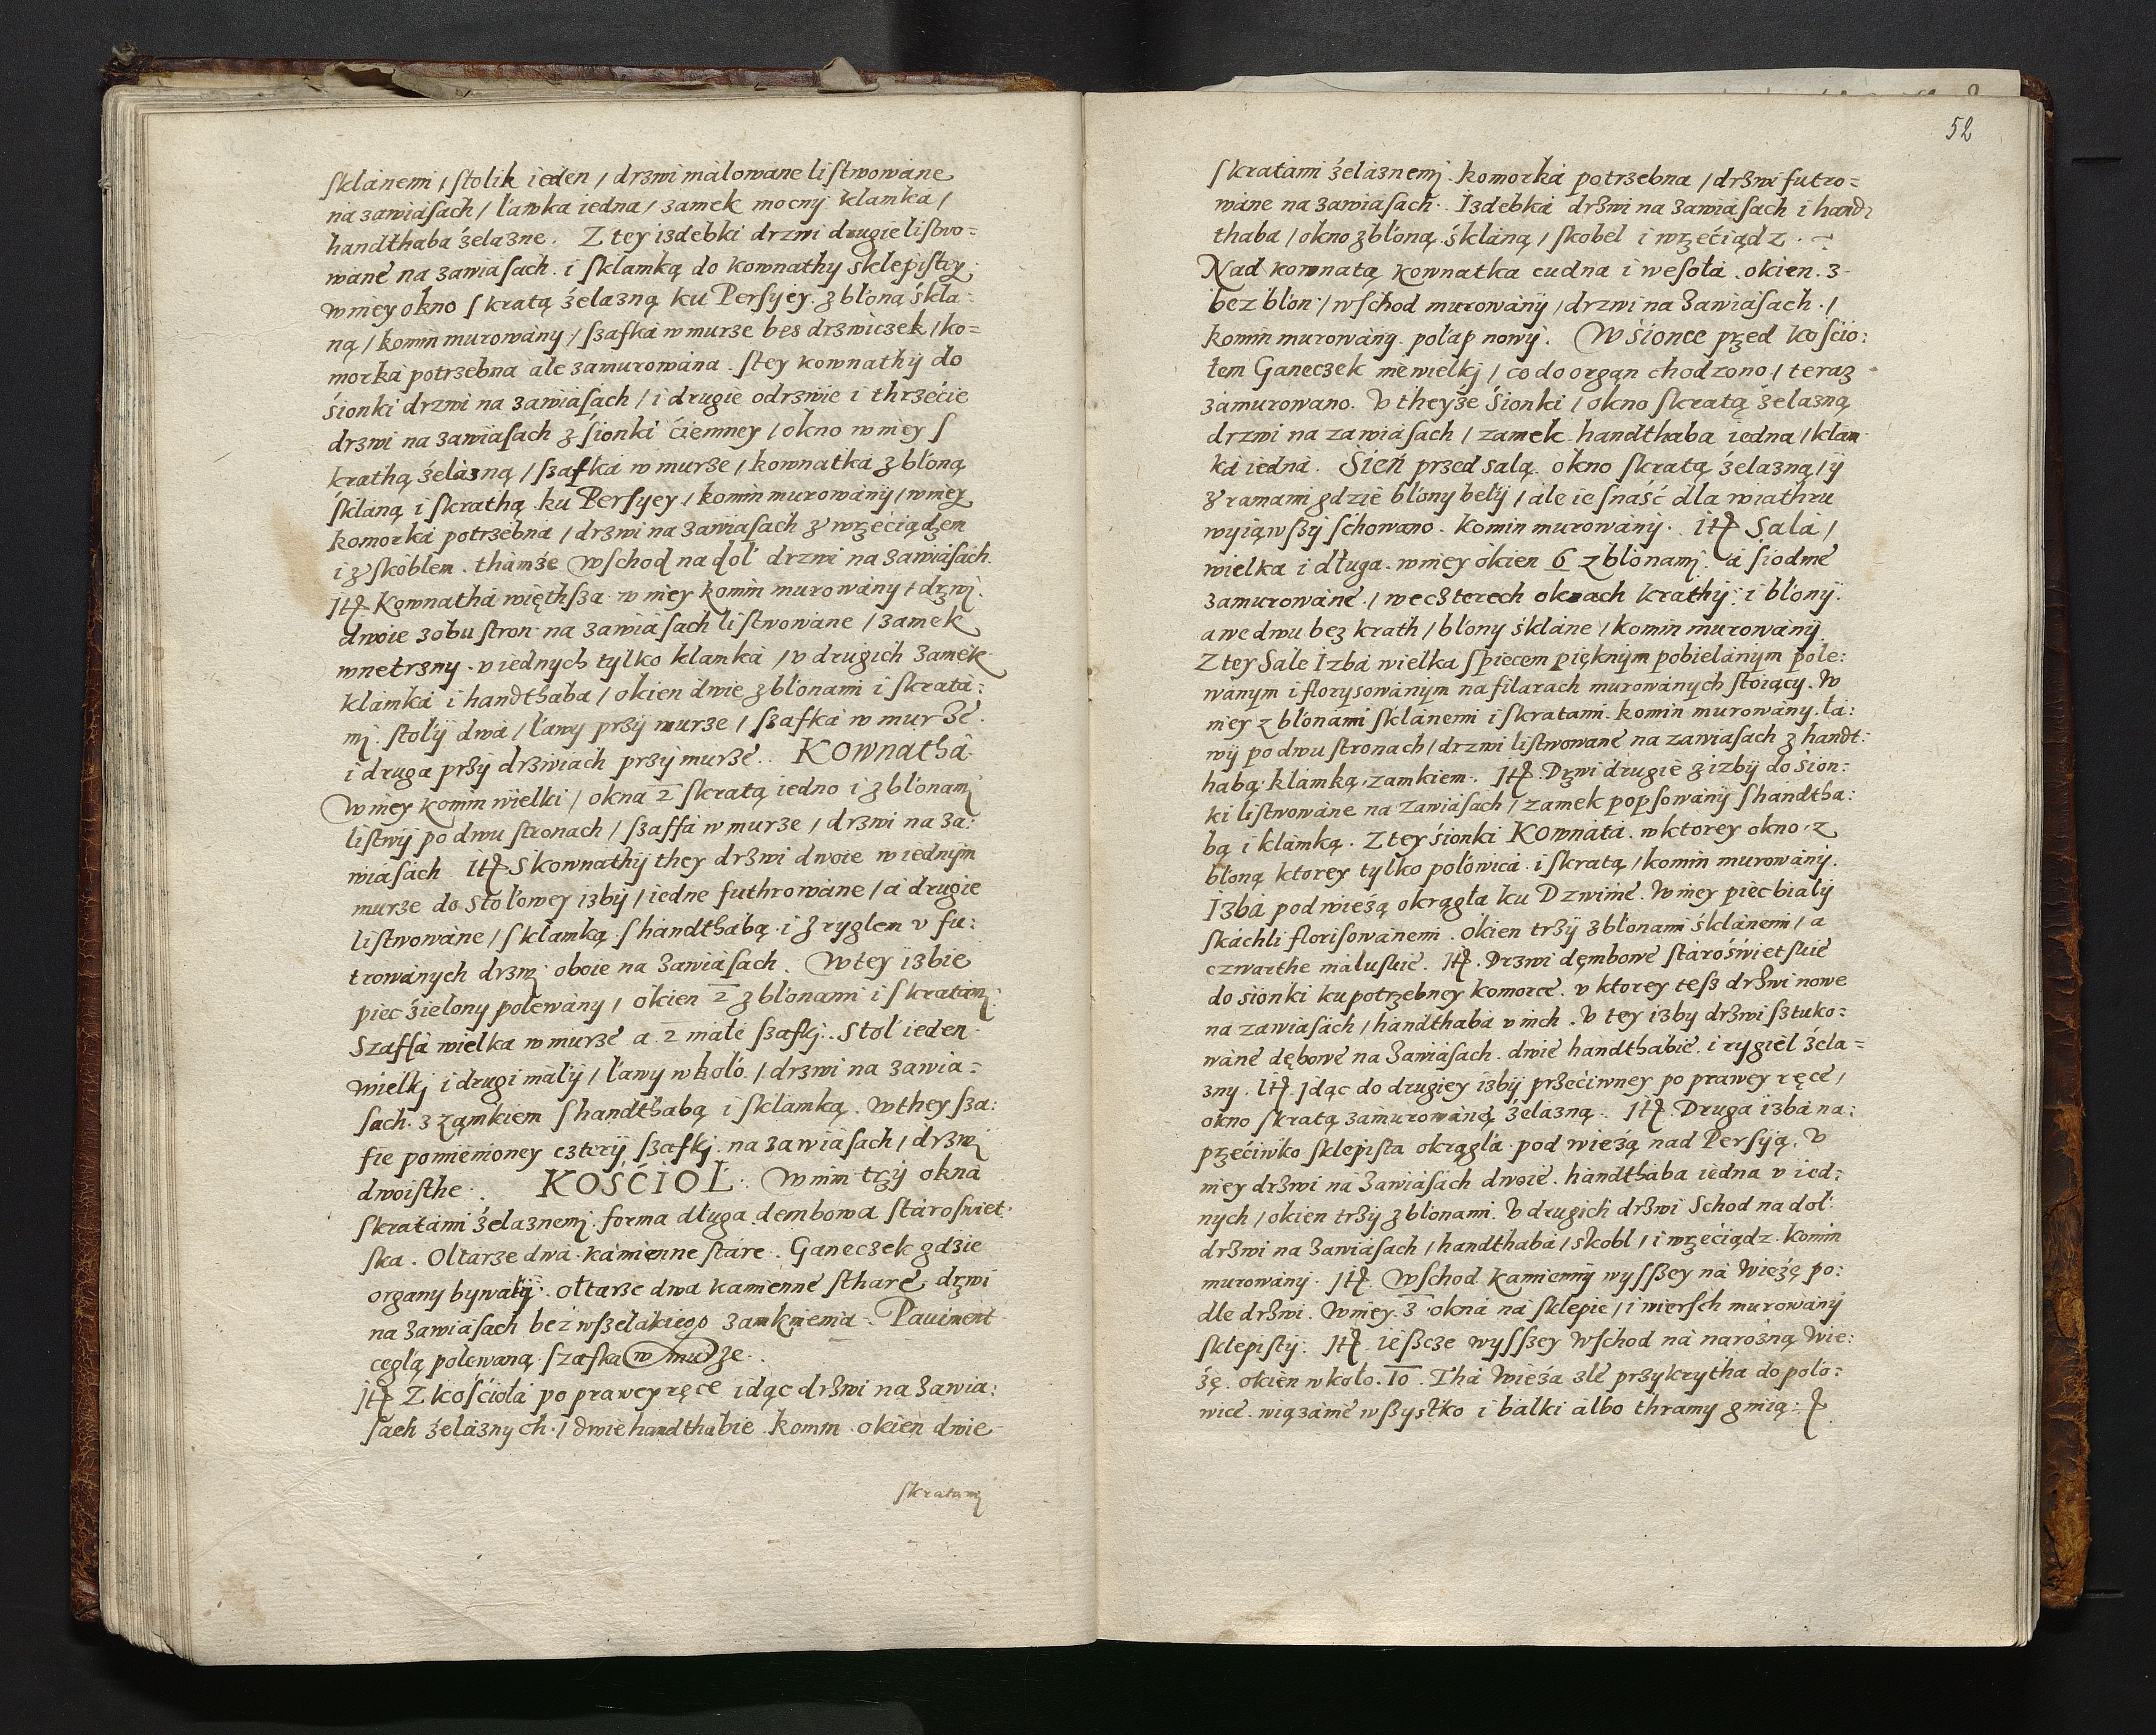 sklánemi / stolik ieden / drzwi málowáne listwowáne
ná zawiásach / łáwka iedna / zamek mocny klamká /
handthaba żelázne. Z tey izdebki drzwi drugie listwo=
wáne ná zawiasach. i sklamką do kownathy sklepistey
w niey okno skratą żelazną ku Persyey. z błoną śkla:
ną / komin murowány / szafká w murze bes drzwiczek / ko=
morká potrzebna ale zamurowána. stey kownathy do
śionki drzwi ná zawiásach / i drugie odrzwie i thrzećie
drzwi na zawiasach z śionki ćiemney / okno w niey s
krathą żelázną / szafká w murze / kownatká z błoną
śkláną i skrathą ku Persyey / komin murowány / w niey
komorká potrzebna / drzwi ná zawiasach z wrzeciądzem
i z skoblem. thamże Wschod na doł drzwi ná zawiásach.
Itē Kownathá więthsza w niey komin murowány / drzwi
dwoie z obu stron na zawiásach listwowáne / zamek
wnetrzny. v iednych tylko klamká / v drugich zamek
klámká i handthaba / okien dwie z błonami i skratá:
mi. stoły dwá / łáwy przy murze / szafká w murze.
i druga przy drzwiách przy murze. KOWNATHA
W niey komin wielki / okna 2 skratą iedno i z błonami
listwy po dwu stronách / szaffá w murze / drzwi na za:
wiásách. Itē S kownathy they drzwi dwoie w iednym
murze do stołowey izby / iedne futhrowáne / á drugie
listwowáne / s klamką s handthabą i z ryglem v fu:
trowánych drzwi oboie na zawiásách. W tey izbie
piec źielony polewány / okien 2 z błonami i skratami
Szaffá wielka w murze a 2 małe szafki. Stoł ieden
wielki i drugi máły / łáwy wkoło / drzwi na zawia:
sach. z ząmkiem s handthabą i sklamką. W they sza:
fie pomienioney czterÿ szafki na zawiásách / drzwi
dwoisthe. KOŚĆIOŁ. W nim trzy okná
skratámi żelaznemi. forma długa dembowa stároswiet:
ska. Ołtarze dwá kámienne stáre. Ganeczek gdzie
organy bywáły. ołtarze dwa kamienne stháre, drzwi
na zawiásach bez wszelákiego zamknienia. Pauiment
cegłą polewaną. szafka w murze.
Itē Z kośćiołá po prawey ręce idąc drzwi na zawia:
sach żeláznych / dwie handthabie. komin. okien dwie
skratami
52
skratámi żelaznemi. komorká potrzebna / drzwi futro=
wáne na zawiasach. Izdebká drzwi na zawiásach i hand:
thaba / okno z błoną śkláną / skobel i wrzećiądz.
Nad kownatą kownatka cudna i wesoła. okien. 3.
bez błon / wschod murowány / drzwi na zawiásach. /
komin murowány. połap nowy. W śionce przed kościo:
łem Ganeczek niewielki / co do organ chodzono / teraz
zámurowano. V theyże śionki / okno skratą żelazną
drzwi na zawiásach / zamek handthaba iedna / klam
ká iedná. Sień przed salą. okno skratą żelazną / y
z ramami gdzie błony beły / ale ie snaść dla wiathru
wyiąwszy schowano. komin murowány. Itē Salá /
wielka i długa. w niey okien 6 z błonami. á siodme
zamurowáne. / we czterech oknach krathy i błony.
a we dwu bez krath / błony śkláne / komin murowány
Z tey Sale Izbá wielka s piecem pięknym pobielánym pole:
wánym i florysowánym na filarach murowánych stoiący. W
niey z błonámi sklánemi i skratami. komin murowány. łá:
wy po dwu stronach / drzwi listwowáne na zawiasach z handt:
habą klámką zamkiem. Itē. Drzwi drugie z izby do śion:
ki listwowáne na zawiásach / zamek popsowány s handtha:
bą i klámką. Z tey śionki KOWNATA. w ktorey okno z
błoną ktorey tylko połowicá i skratą / komin murowány.
Izbá pod wieżą okrągła ku Dzwinie. W niey piec biały
skáchli florisowánemi. okien trzy z błonami śklánemi / a
czwarthe málusuie. Itē. Drzwi dęmbowe stároświetsuie
do śionki ku potrzebney komorce. v ktorey tesz drzwi nowe
na zawiasách / handthabá v nich. V tey izby drzwi sztuko:
wáne dębowe na zawiásach. dwie handthabie. i rygiel żela=
zny. Itē Idąc do drugiey izby przećiwney po prawey ręce /
okno skratą zamurowáne, żelazną. Itē Druga izbá na:
przećiwko sklepista okrągła pod wieżą nad Persyą. V
niey drzwi na zawiásach dwoie. hándthaba iedna v ied:
nych / okien trzy z błonami. V drugich drzwi Schod na doł
drzwi na zawiásach / handthabá / skobl / i wrzećiądz. komin
murowány. Itē Wschod kamienny wysszey ná wieżę po:
dle drzwi. W niey. 3 okná ná sklepie / i wiersch murowány
sklepisty. Itē ieszcze wysszey Wschod ná narożną Wie:
żę. okien wkoło. 10. Thá Wieża zle przykrytha do poło:
wice. wiązánie wszystko i bálki álbo thramy gniią.